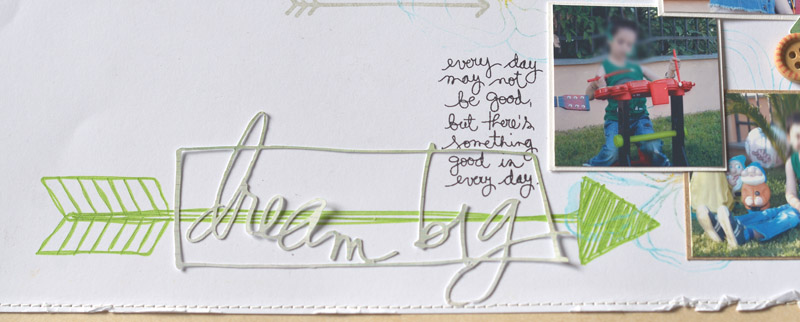 every day
may not
be good,
but there's
something
good in
every day.
dream big